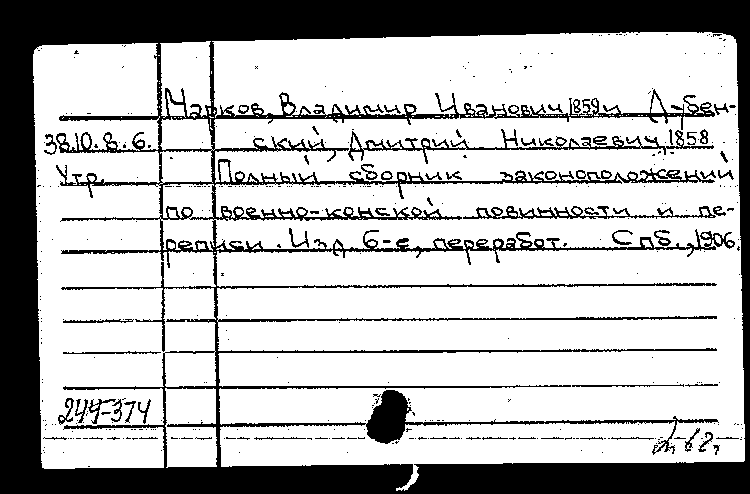 Марков, Владимир Иванович, 1859 и Д-бен-
38.10.8.6. ский, Дмитрий Николаевич, 1858
Утр. Полный сборник законоположений
по военно-конской повинности и пе-
реписи. Изд. 6-е, переработ. Спб., 1906.
244-374